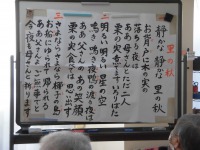 里の秋
一
静かな静かな里の秋
お背戸に木の実の
落ちる夜は
ああ母さんとただ二人
栗の実煮てますいろりばた
二
明るい明るい星の空
鳴き鳴き夜鴨の渡る夜は
ああ父さんのあの笑顔
栗の実食べては思い出す
三
さよならさよなら椰子の島
お船にゆられて帰られる
ああ父さんよご無事でと
今夜も母さんと祈ります